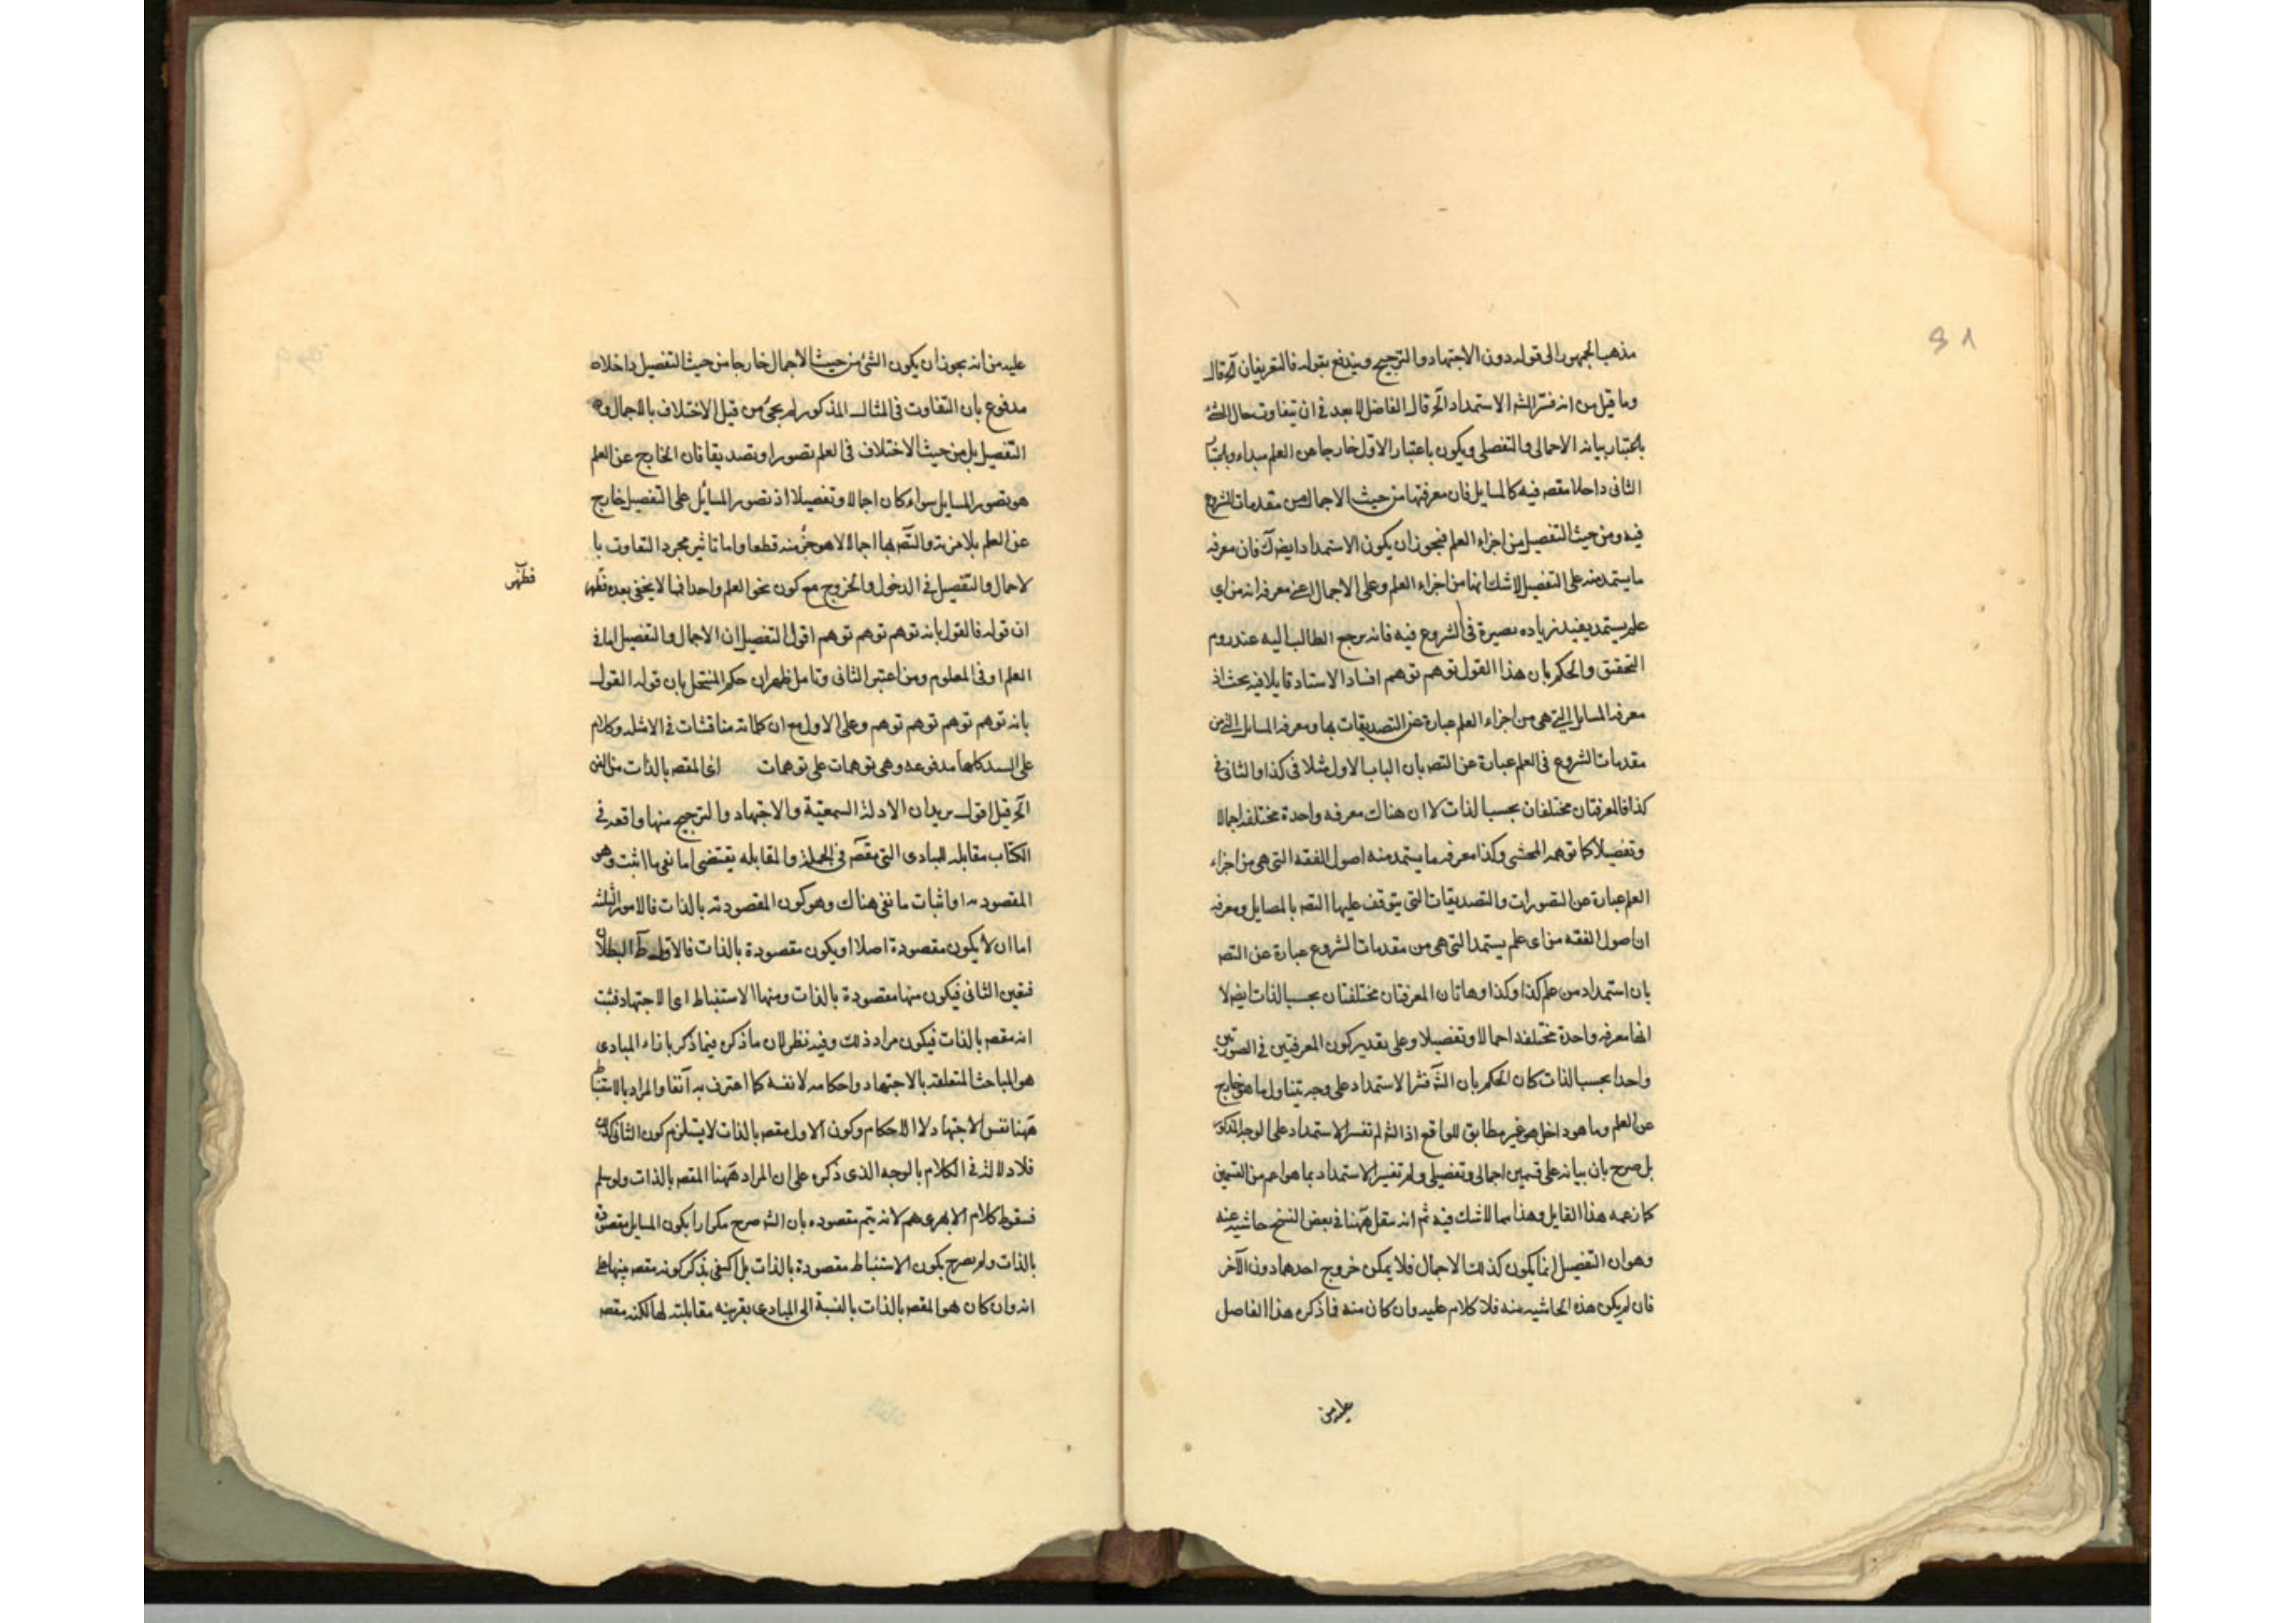 ٩١
مذهب الجمهور الى قوله دون الاجتهاد والترجيح ويندفع بقوله فالتعريفان آه قال
وما قيل من انه فسر الشه الاستمداد آلخ قال الفاضل لا بعد في ان يتفاوت حال الشئ
باعتبار بيانه الاجمالى والتفصلى ويكون باعتبار الاول خارجا من العلم مبداء وباعتبار
الثانى داخلا مقصه فيه كالمسايل فان معرفتها من حيث الاجمال من مقدمات الشروع
فيه ومن حيث التفصيل من اجزاء العلم فيجوز ان يكون الاستمداد ايضه ك فان معرفه
ما يستمد منه على التفصيل لا شك انها من اجزاء العلم وعلى الاجمال اعنى معرفه انه من اى
علم يستمد يفيد زياده بصيرة فى الشروع فيه فانه يرجع الطالب اليه عند روم
التحقيق والحكم بان هذا القول توهم توهم افسادا لاستاد قايلا فيه بحث اذ
معرفه المسايل التى هى من اجزاء العلم عبارة عن التصديقات بها ومعرفه المسايل التى من
مقدمات الشروع فى العلم عبارة عن التصه بان الباب الاول مثلا فى كذا والثانى فى
كذا فالمعرفتان مختلفان بحسب الذات لا ان هناك معرفه واحدة مختلفه اجمالا
وتفصيلا كما توهمه المحشى وكذا معرفه ما يستمد منه اصول الفقه التى هى من اجزاء
العلم عبارة عن التصورات والتصديقات التى يتوقف عليها التصه بالمسايل ومعرفه
ان اصول الفقه من اى علم يستمد التى هى من مقدمات الشروع عبارة عن التصه
بان استمداده من علم كذا وكذا وهاتان المعرفتان مختلفتان بحسب الذات ايضه لا
انها معرفه واحدة مختلفه اجمالا وتفصيلا وعلى تقدير كون المعرفتين فى الصورتين
واحدا بحسب الذات كان الحكم بان الشه فسر الاستمداد على وجه يتناول ما هو خارج
عن العلم وما هو داخل هو غير مطابق للواقع اذ الشه لم تفسر الاستمداد على الوجه المذكور
بل صرح بان بيانه على قسمين اجمالى وتفصيلى ولم تفسير الاستمداد بما هو اعم من القسمين
كما زعمه هذا القايل وهذا مما لا شك فيه ثم انه نقل ههنا فى بعض النسخ حاشيه عنه
وهو ان التفصيل انما يكون كذلك الاجمال فلا يمكن خروج احدهما دون الآخر
فان لم يكن هذه الحاشيه منه فلا كلام عليه وان كان منه فما ذكره هذا الفاضل
عليه من
عليه من انه يجوز ان يكون الشئ من حيث الاجمال خارجا من حيث التفصيل داخلا
مدفوع بان التفاوت فى المثال المذكور لم يجئ من قبل الاختلاف بالاجمال و
التفصيل بل من حيث الاختلاف فى العلم تصورا وتصديقا فان الخارج عن العلم
هو تصور المسايل سواء كان اجمالا وتفصيلا اذ تصور المسائل على التفصيل خارج
عن العلم بلا مزية والتصه بها اجمالا هو جزء منه قطعا واما تاثير مجرد التفاوت با
لاجمال والتفصيل فى الدخول والخروج مع كون نحو العلم واحدا فمما لا يخفى بعده فظهر
فظهر
ان قوله فالقول بانه توهم توهم توهم اقول التفصيل ان الاجمال والتفصيل اما فى
العلم او فى المعلوم ومن اعتبر الثانى وتامل ظهر ان حكم المنتحل بان قوله القول
بانه توهم توهم توهم توهم وعلى الاول مع ان كلماته مناقشات فى الامثله وكلام
على السند كلها مدفوعه وهى توهمات على توهمات اى المقصه بالذات من الفن
آلخ قيل اقول يريد ان الادلة السمعيّة والاجتهاد والترجيح منها واقعه فى
الكتاب مقابله للمبادى التى مقصه فى الجملة والمقابله يقتضى اما نفى ما اثبت وهو
المقصوديه او اثبات ما نفى هناك وهو كون المقصودية بالذات فالامور الثلثه
اما ان لا يكون مقصودة اصلا او يكون مقصودة بالذات فالاول ظ البطلان
فتعين الثانى فيكون منها مقصودة بالذات ومنها الاستنباط اى الاجتهاد فثبت
انه مقصه بالذات فيكون مراد ذلك وفيه نظر لان ما ذكره فيما ذكر بازاء المبادى
هو المباحث المتعلقه بالاجتهاد واحكامه لا نفسه كما اعترف به آنفا والمراد بالاستنباط
ههنا نفس الاجتهاد لا الاحكام وكون الاول مقصه بالذات لا يستلزم كون الثانى كذلك
فلا دلالة فى الكلام بالوجه الذى ذكره على ان المراد ههنا المقصه بالذات ولو سلم
فسقوط كلام الابهرى هم لانه يتم مقصوده بان الشه صرح مكرارا بكون المسايل مقصودة
بالذات ولم يصرح بكون الاستنباط مقصودة بالذات بل اكتفى بذكر كونه مقصه منها على
انه وان كان هو المقصه بالذات بالنسبة الى المبادى بقرينه مقابلته لها لكنه مقصه